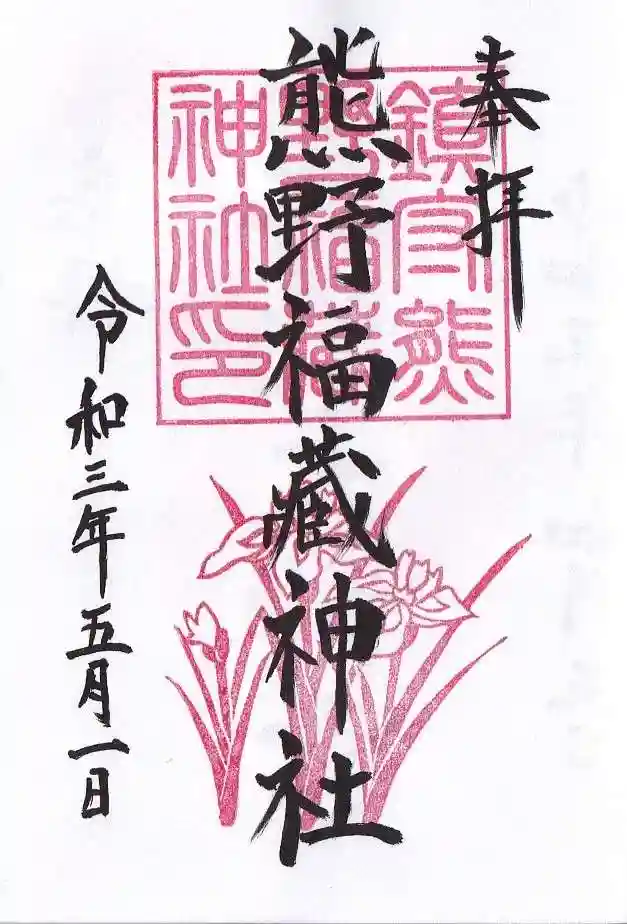 奉拝
熊野福蔵神社
令和三年五月一日
鎮守熊
野福蔵
神社印